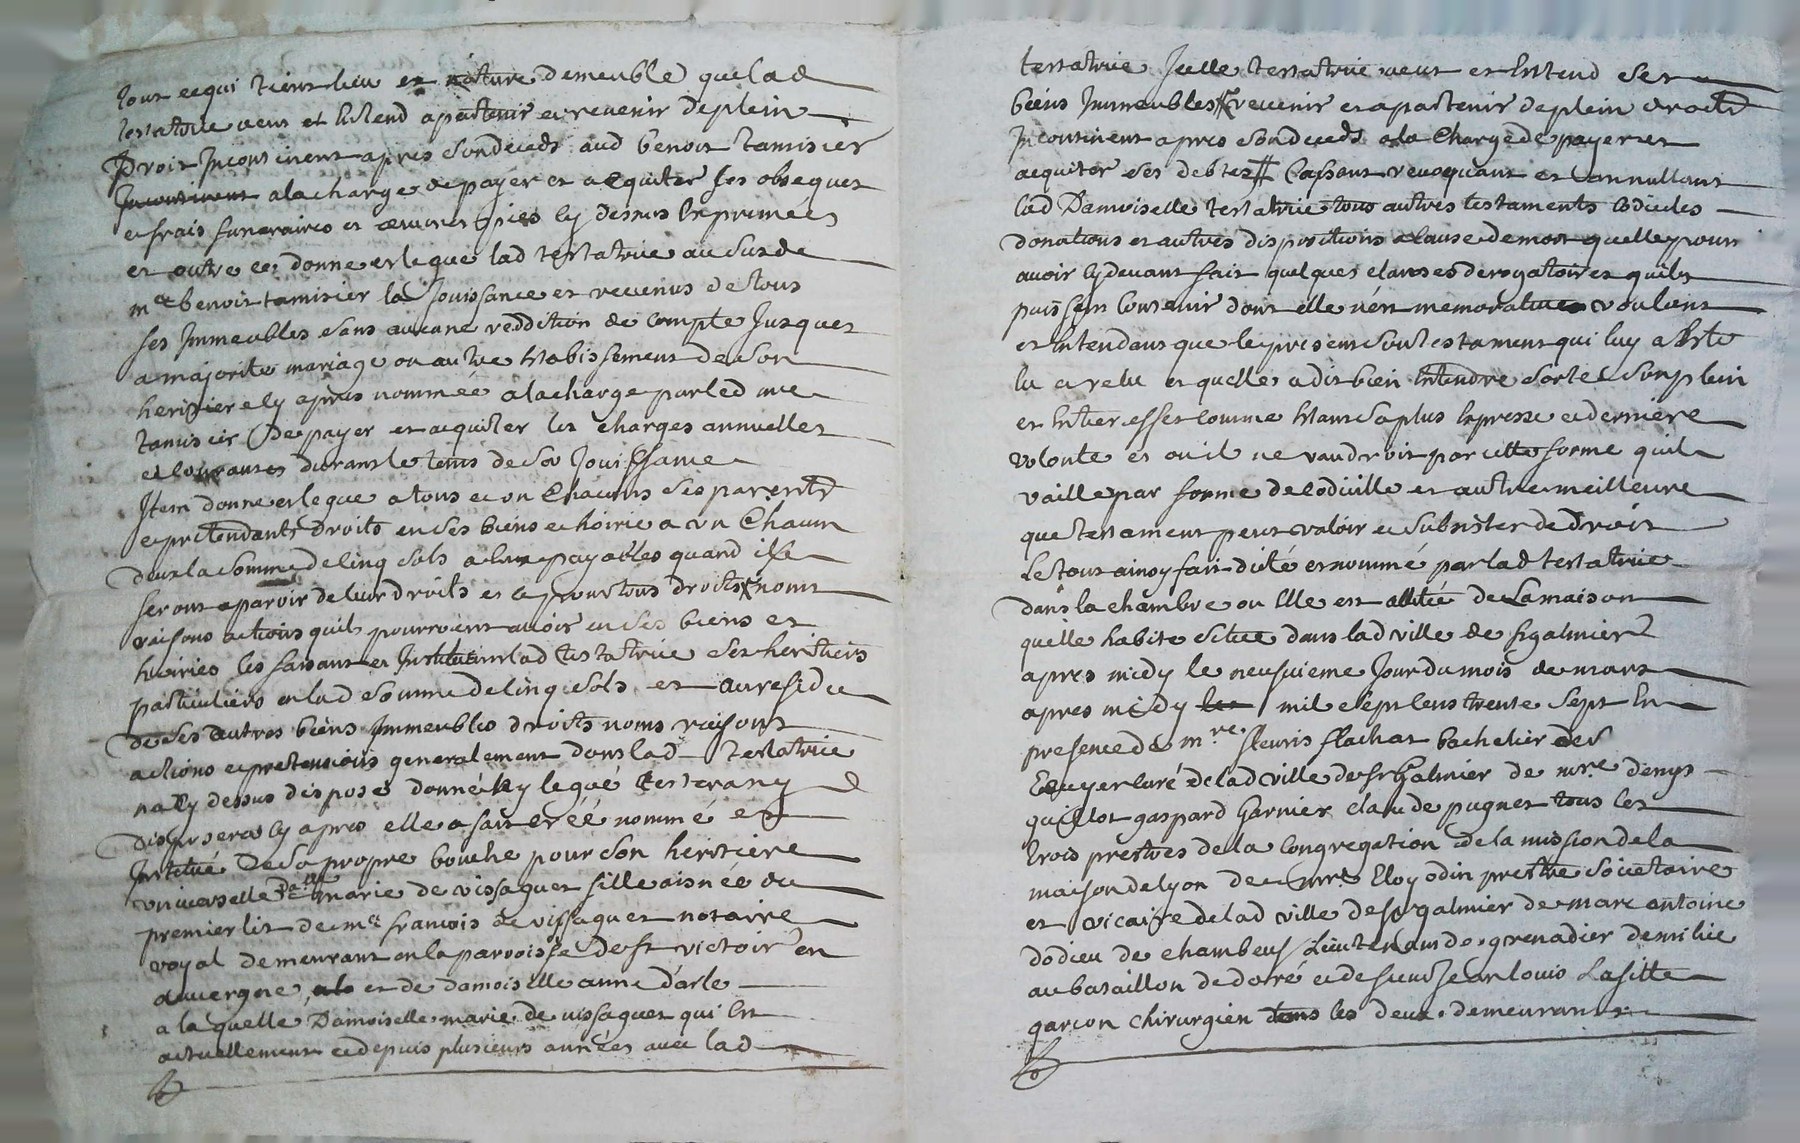 tout ce qui tient lieu et nature de meuble que lad
testatrice veut et entend apartenir et revenir de plein
Droit Incontinent apres son deceds aud benoit tamisier
Incontinent a la charge de payer et acquiter ses obseques
et frais funeraires et œuvres pies cy dessus exprimées
et outre ce donne et legue lad testatrice au susd
me benoit tamisier la Jouissance et revenus de tous
ses Immeubles sans aucune reddition de compte Jusques
a majorité mariage ou autre etabissement de son
heritiere cy apres nommée a la charge par led me
tamisier de payer et acquiter les charges annuelles
et courantes durant le tems de sa Jouissance
Item donne et legue a tous et un chacuns ses parents
et pretendants droits en ses biens et hoirie a un chacun
deux la somme de cinq sols a eux payables quand ils
seront aparoir de leur droits et ce pour tous droits noms
raisons actions quils pourroient avoir en ses biens et
hoiries les faisant et Instituant lad testatrice ses heritiers
particuliers en lad somme de cinq sols et au residu
de ses autres biens Immeubles droits noms raisons
actions et pretensions generalement dont lad testatrice
na cy dessus disposé donné ny legué et
disposera cy apres elle a fait créé nommé et
Institué de sa propre bouche pour son heritiere
universelle Dlle marie de vissaguet fille aisnée du
premier lit de me francois de vissaguet notaire
royal demeurant en la parroisse de st victoir en
auvergne et de damoiselle anne d'arle
a la quelle Damoiselle marie de vissaguet qui est
actuellement et depuis plusieurs années avec lad
testatrice Icelle testatrice veut et Entend ses
biens Immeubles revenir et apartenir de plein droit
Incontinent apres son deceds a la charge de payer et
acquiter ses debtes Cassant revoquant et annullant
lad Damoiselle testatrice tous autres testaments codicles
donations et autres dispositions a cause de mort quelle pour
avoir cy devant fait quelques clauses derogatoires quils
puissent contenir dont elle n'est memorative voulant
et Entendant que le present soul testament qui luy a Eté
lu et relu et quelle a dit bien Entendre sorte son plein
et Entier effet comme etant sa plus expresse et derniere
volonte et ou il ne vaudroit par cette forme quil
vaille par forme de codicille et autre meilleure
que testament peut valoir et subsister de droit
Le tout ainsy fait dicté et nommé par lad testatrice
dans la chambre ou Elle est alitée de La maison
quelle habite scitue dans lad ville de st galmier
apres midy le neufvieme Jour du mois de mars
apres midy mil sept cens trente sept En
presence de mre fleuris flachat bachelier
Ecuyer curé de lad ville de st Galmier de mre denys
quillot gaspard garnier claude pugnet tous les
trois prestres de la congregation de la mission de la
maison de lyon de mre Eloy odin prestre societaire
et vicaire de lad ville de st galmier de marc antoine
dodieu de chambeuf Lieutenant de grenadier de milice
au bataillon de dorré et de sieur Jean louis Lafitte
garcon chirurgien tous les deux demeurant